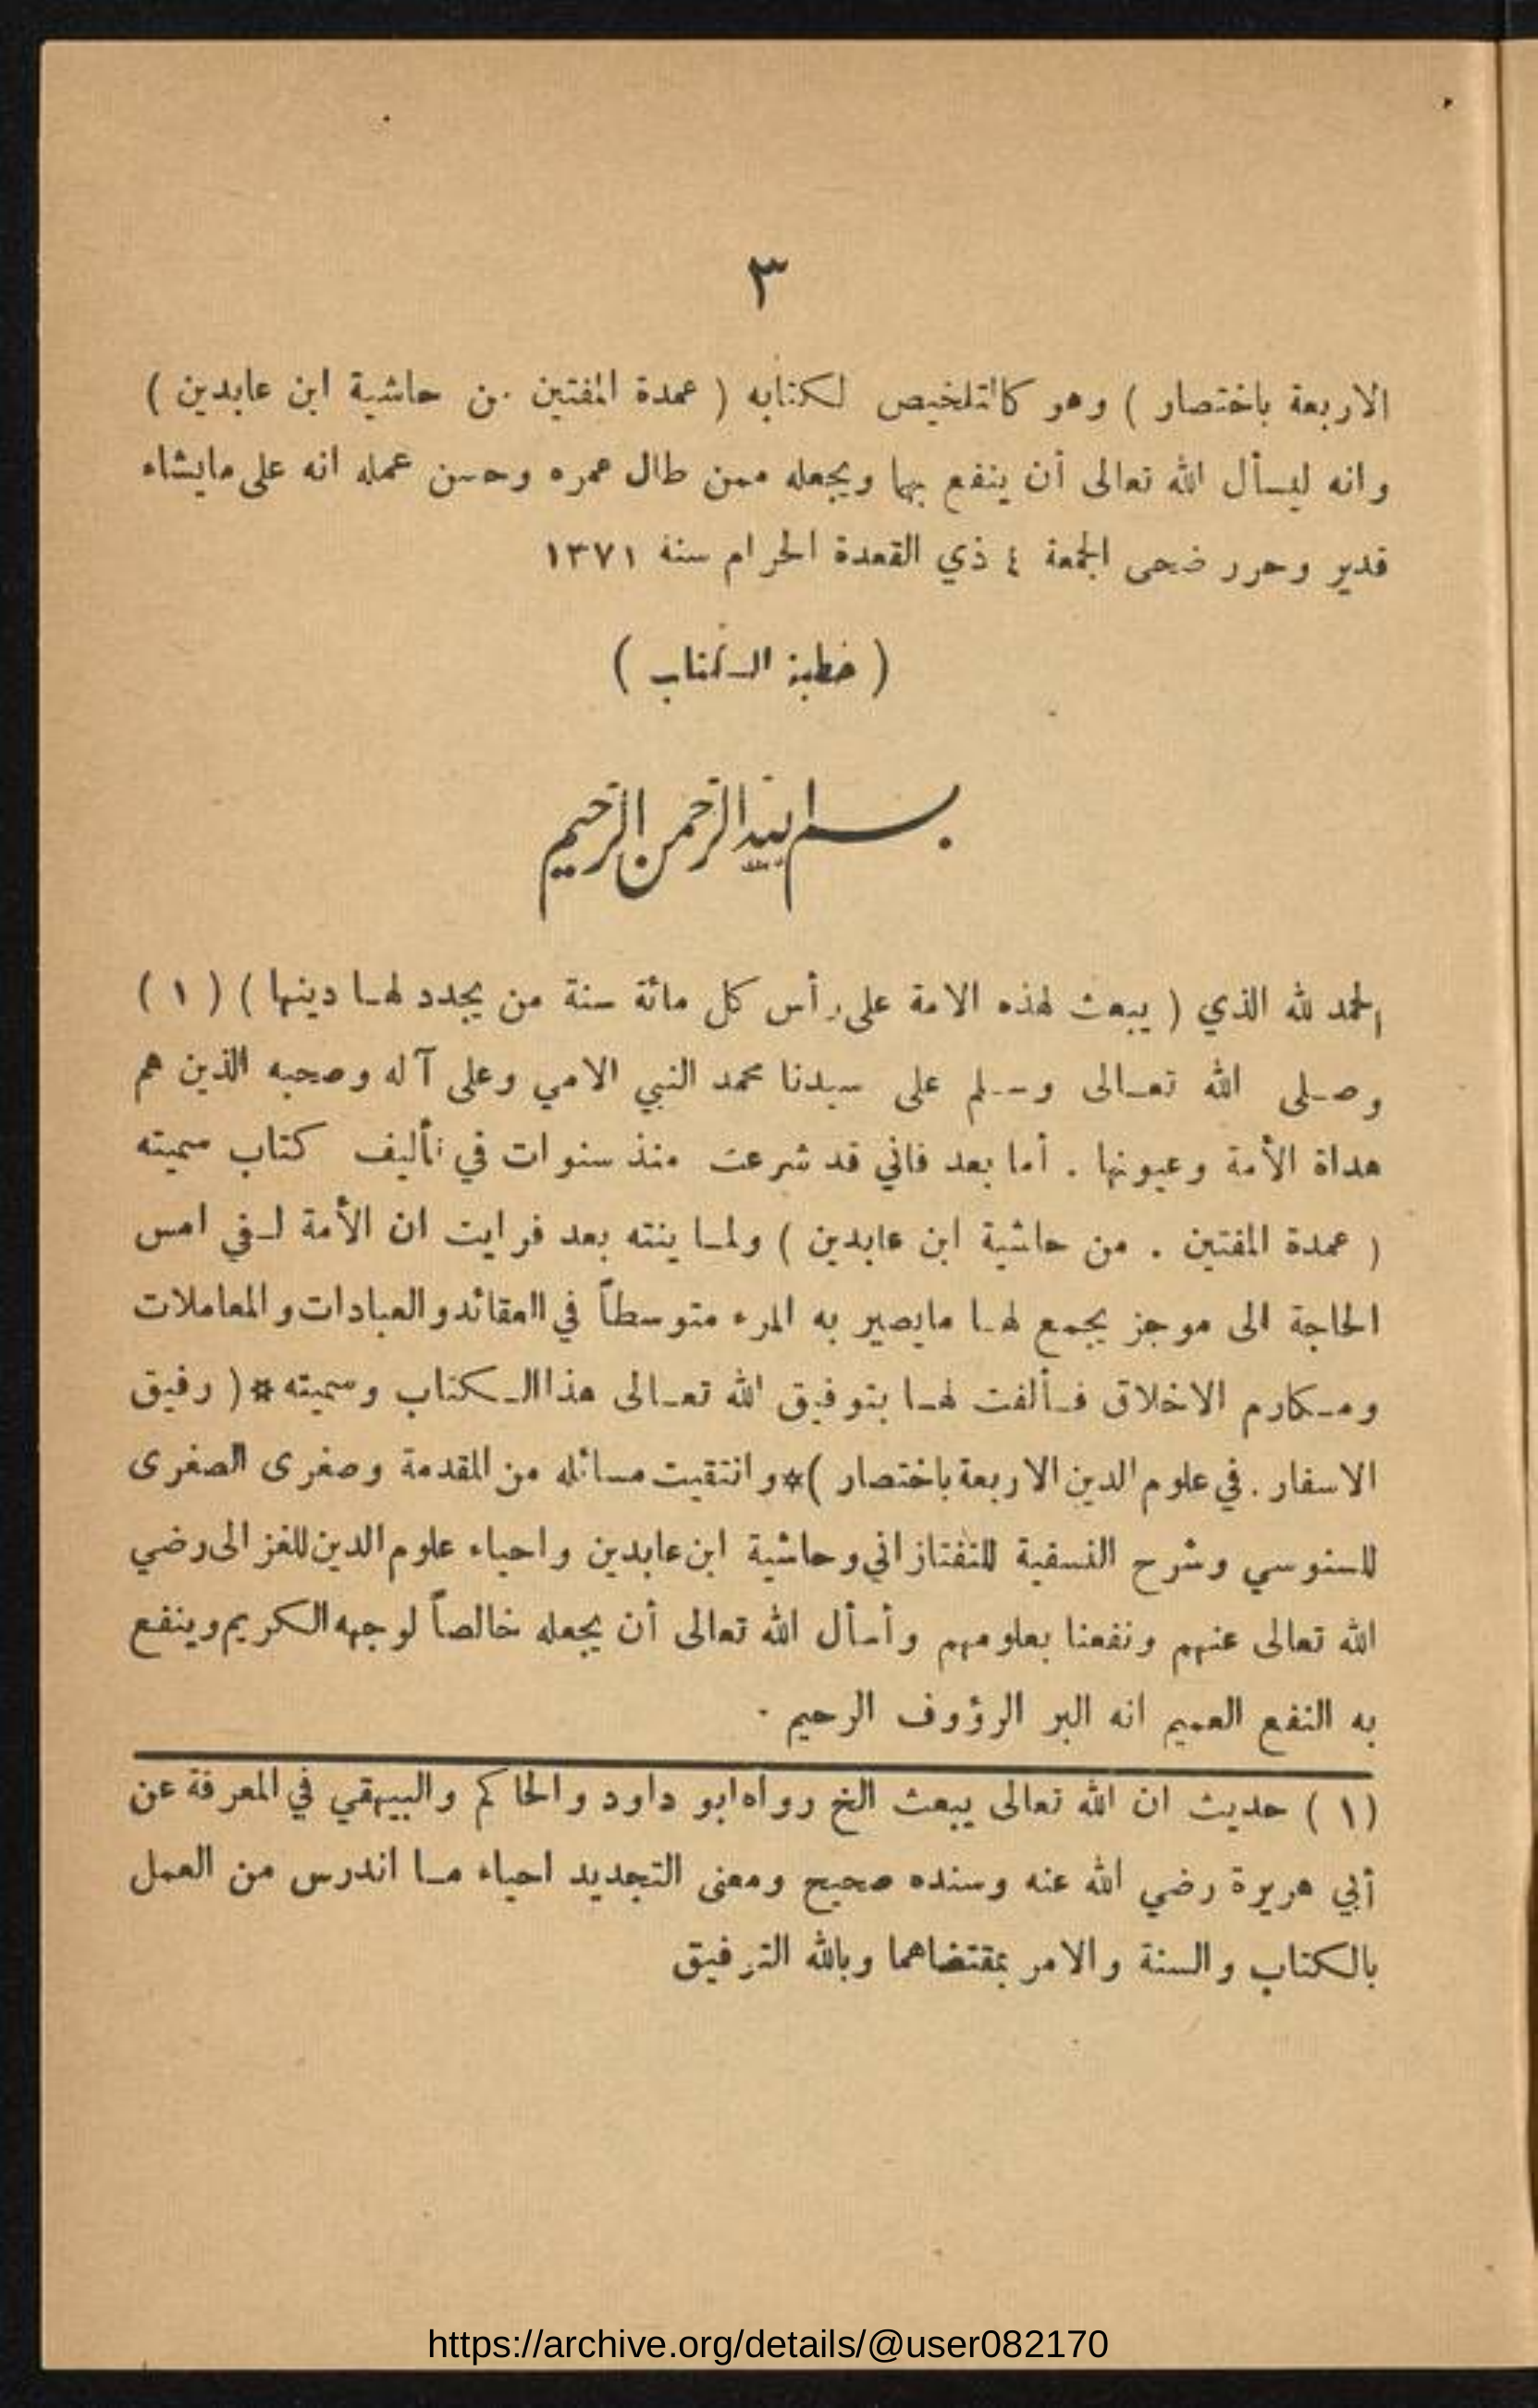 ٣
الاربعة باختصار ) وهو كالتلخيص لكتابه ( عمدة المفتين من حاشية ابن عابدين )
وانه ليسأل الله تعالى أن ينفع بها ويجعله ممن طال عمره وحسن عمله انه على مايشاء
قدير وحرر ضحى الجمعة ٤ ذي القعدة الحرام سنة ١٣٧١
( خطبة الكتاب )
بسم الله الرحمن الرحيم
الحمد لله الذي ( يبعث لهذه الامة على رأس كل مائة سنة من يجدد لها دينها ) ( ١ )
وصلى الله تعالى وسلم على سيدنا محمد النبي الامي وعلى آله وصحبه الذين هم
هداة الأمة وعيونها . أما بعد فاني قد شرعت منذ سنوات في تأليف كتاب سميته
( عمدة المفتين . من حاشية ابن عابدين ) ولما ينته بعد فرايت ان الأمة لفي امس
الحاجة الى موجز يجمع لها مايصير به المرء متوسطاً في العقائد والعبادات والمعاملات
ومكارم الاخلاق فألفت لها بتوفيق الله تعالى هذا الكتاب وسميته * ( رفيق
الاسفار . في علوم الدين الاربعة باختصار ) * وانتقيت مسائله من المقدمة وصغرى الصغرى
للسنوسي وشرح النسفية للتفتازاني وحاشية ابن عابدين واحياء علوم الدين للغزالى رضي
الله تعالى عنهم ونفعنا بعلومهم وأسأل الله تعالى أن يجعله خالصاً لوجهه الكريم وينفع
به النفع العميم انه البر الرؤوف الرحيم .
( ١ ) حديث ان الله تعالى يبعث الخ رواه ابو داود والحاكم والبيهقي في المعرفة عن
أبي هريرة رضي الله عنه وسنده صحيح ومعنى التجديد احياء ما اندرس من العمل
بالكتاب والسنة والامر بمقتضاهما وبالله التوفيق
https://archive.org/details/@user082170